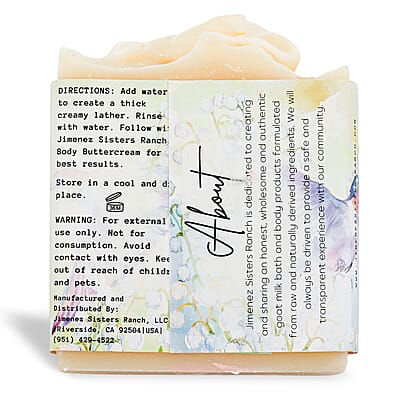 DIRECTIONS: Add water
to create a thick
creamy lather. Rinse
with water. Follow wi
Jimenez Sisters Ranch
Body Buttercream for
best results.
Store in a cool and d
place.
WARNING: For external
use only. Not for
consumption. Avoid
contact with eyes. Keep
out of reach of child
and pets.
Manufactured and
Distributed By:
Jimenez Sisters Ranch, LLC
Riverside, CA 92504|USA|
(951) 429-4522
About
Jimenez Sisters Ranch is dedicated to creating
and sharing an honest, wholesome and authentic
goat milk bath and body products formulated
from raw and naturally derived ingredients. We will
always be driven to provide a safe and
transparent experience with our community.